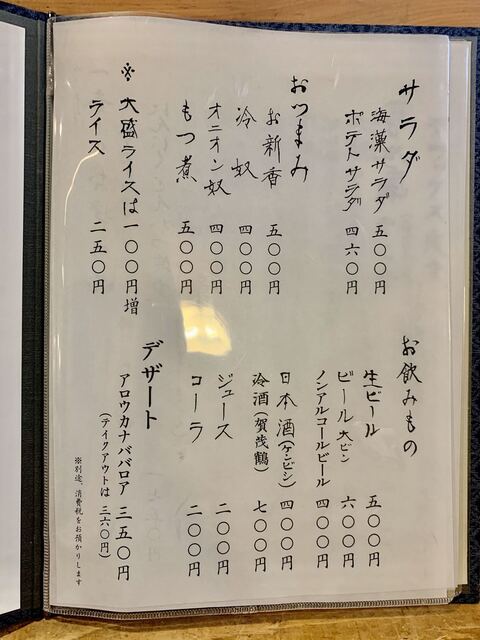 サラダ
海藻サラダ 五〇〇円
ポテトサラダ 四六〇円
おつまみ
お新香 五〇〇円
冷奴 四〇〇円
オニオン奴 四〇〇円
もつ煮 五〇〇円
※大盛ライスは一〇〇円増
ライス 二五〇円
お飲みもの
生ビール 五〇〇円
ビール大ビン 六〇〇円
ノンアルコールビール 四〇〇円
日本酒(ケンビシ) 四〇〇円
冷酒(賀茂鶴) 七〇〇円
ジュース 二〇〇円
コーラ 二〇〇円
デザート
アロウカナババロア 三五〇円
(テイクアウトは 三六〇円)
※別途、消費税をお預かりします